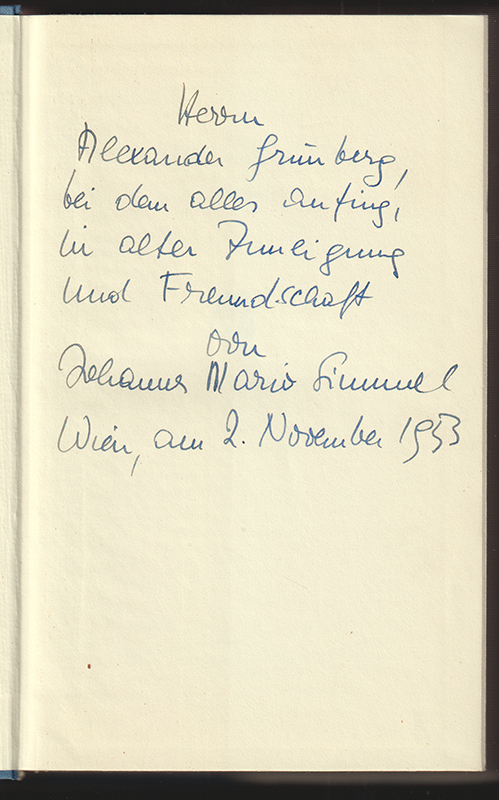 Herrn
Alexander Grünberg,
bei dem alles anfing,
in alter Zuneigung
und Freundschaft
von
Johannes Mario Simmel
Wien, am 2. November 1953